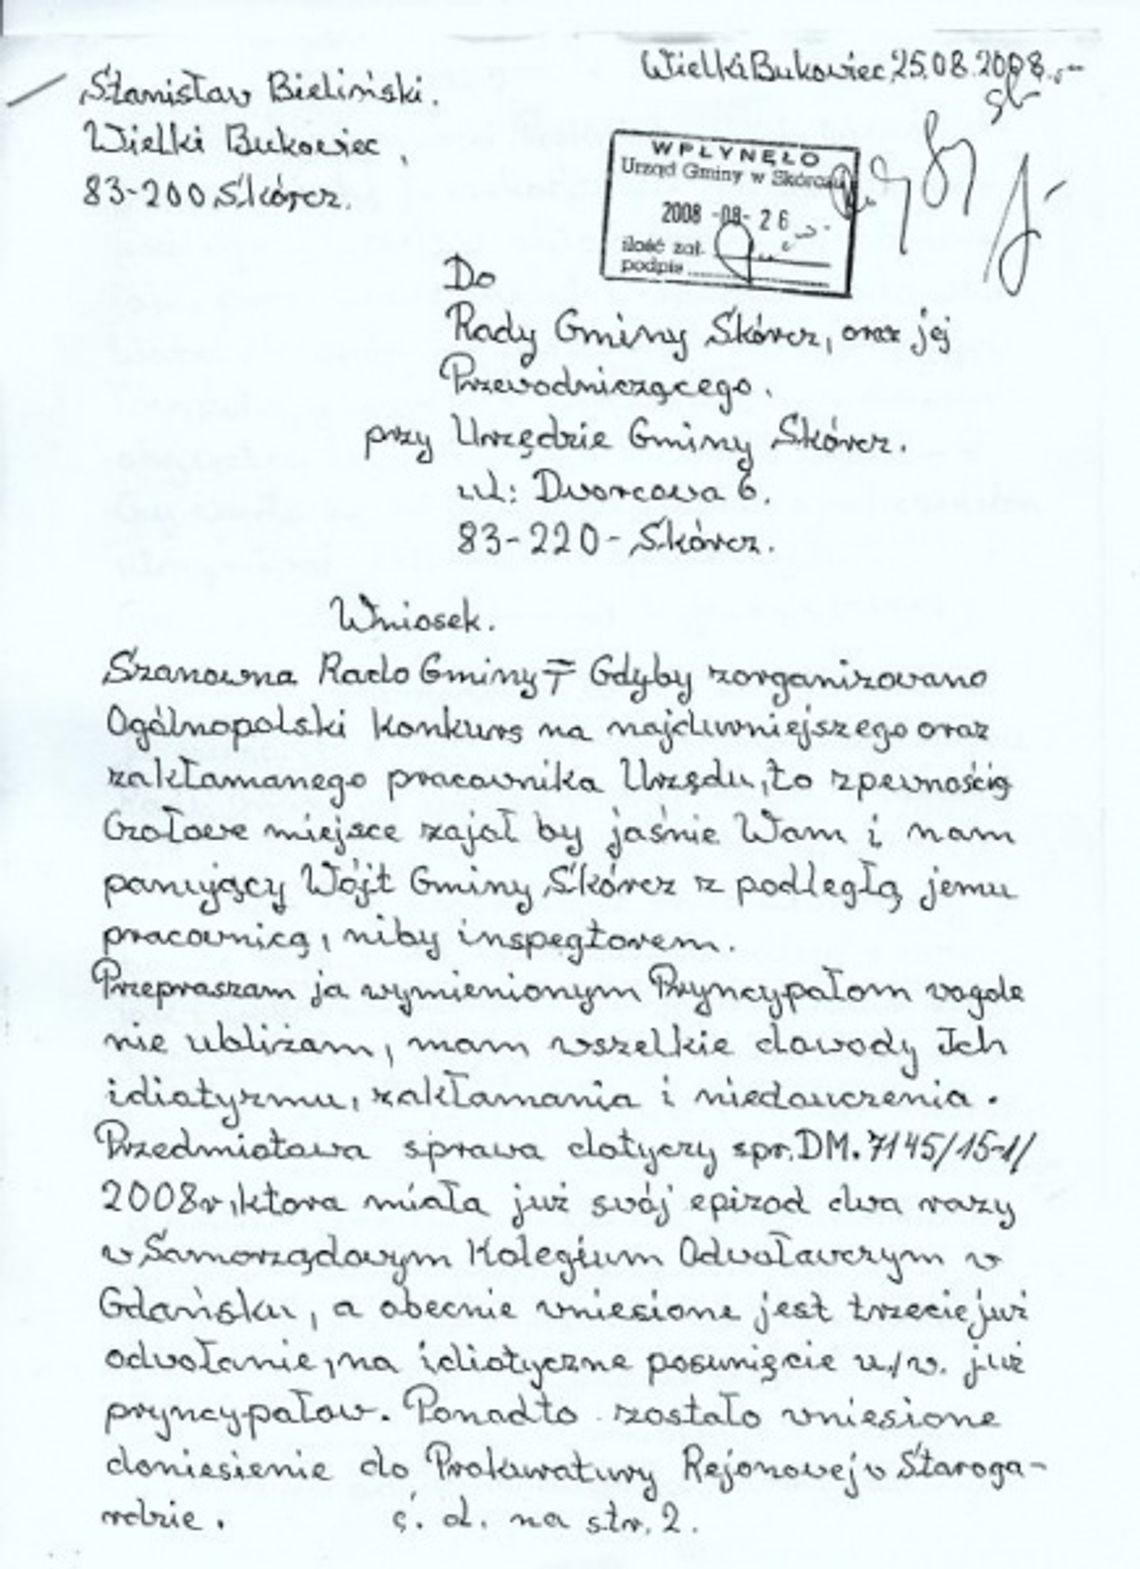 Wielki Bukowiec, 25.08.2008r.
Stanisław Bieliński.
Wielki Bukowiec,
83-200 Skórcz.
WPŁYNĘŁO
Urząd Gminy w Skórczu
2008 -08- 26
ilość zał.
podpis
Do
Rady Gminy Skórcz, oraz jej
Przewodniczącego.
przy Urzędzie Gminy Skórcz.
ul: Dworcowa 6.
83-220-Skórcz.
Wniosek.
Szanowna Rado Gminy Gdyby zorganizowano
Ogólnopolski konkurs na najdurniejszego oraz
zakłamanego pracownika Urzędu, to zpewnością
Czołowe miejsce zajął by jaśnie Wam i nam
panujący Wójt Gminy Skórcz z podległą jemu
pracownicą, niby inspegtorem.
Przepraszam ja wymienionym Pryncypałom wogole
nie ubliżam, mam wszelkie dowody Ich
idiotyzmu, zakłamania i niedouczenia.
Przedmiotowa sprawa dotyczy spr. DM. 7145/15-1/
2008r, ktora miała już swój epizod dwa razy
w Samorządowym Kolegium Odwoławczym w
Gdańsku, a obecnie wniesione jest trzecie już
odwołanie, na idiotyczne posunięcie u/w. już
pryncypałow. Ponadto zostało wniesione
doniesienie do Prokuratury Rejonowej w Staroga-
rdzie. ć. d. na str. 2.